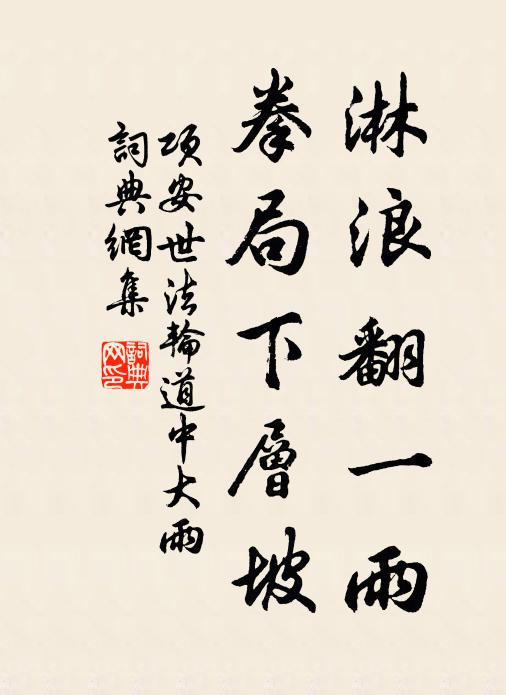 淋浪翻一雨
拳局下層坡
項安世法輪道中大雨
詞典網集
詞典網印